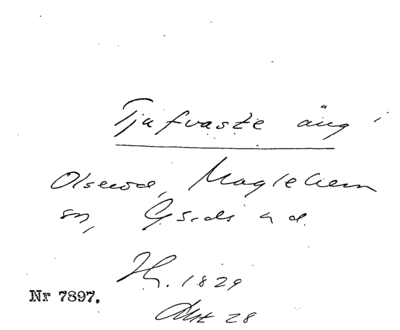 Tjufvaste äng
Olseröd, Maglehem
sn, Gärds hd.
H. 1829
Akt 28
Nr 7897.